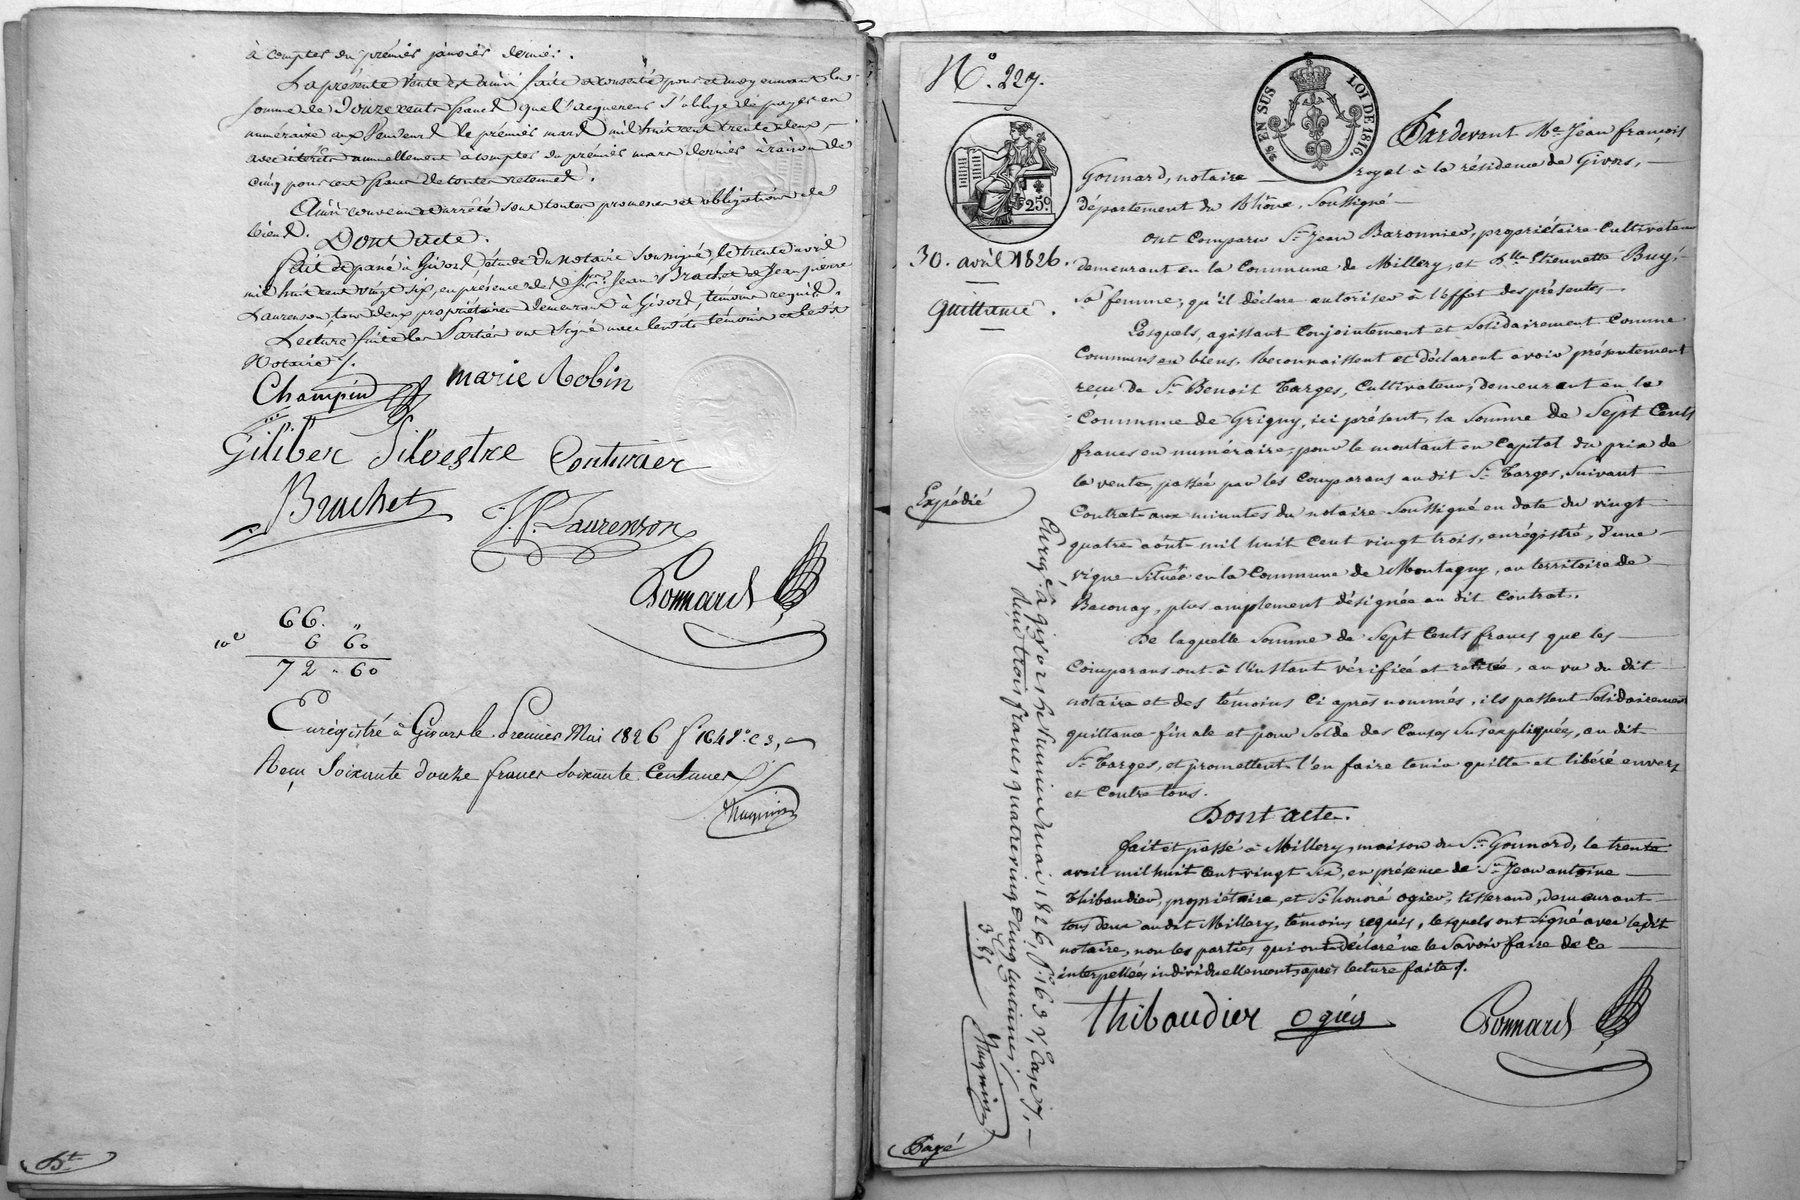 à compter du premier janvier dernier.
La présente vente est ainsi faite et consentie pour et moyennant la
somme de Douze cents francs que l'acquereur s'oblige de payer en
numéraire aux Vendeurs le premier mars mil huit cent trente deux,
avec intérêts annuellement à compter du premier mars dernier à raison de
cinq pour cent francs de toutes retenues.
Ainsi convenu et arrêté sous toutes promesses et obligations de
biens. Dont acte.
fait et passé à Givors, étude du notaire soussigné, le trente avril
mil huit cent vingt six, en présence de Jean Brachet et Jean pierre
Laurenson, tous deux propriétaires demeurant à Givors, témoins requis.
Lecture faite les Parties ont signé avec lesdits témoins et ledit
Notaire /.
Champin marie Robin
Giliber Silvestre Couturier
Brachet J. P. Laurenson
Gonnard
66. "
10e 6 60
72 - 60
Enregistré à Givors le Premier Mai 1826 f° 164 v° c 3,
Reçu Soixante douze francs soixante Centimes
N°. 227.
25 EN SUS LOI DE 1816.
25c
30. avril 1826.
Quittance.
Expédié
Pardevant Me Jean françois
Gonnard, notaire royal à la résidence de Givors,
département du Rhône, soussigné
Ont Comparu Sr Jean Baronnier, propriétaire-Cultivateur
demeurant en la Commune de Millery, et Dlle Etiennette Buy,
sa femme, qu'il déclare autoriser à l'effet des présentes.
Lesquels, agissant Conjointement et Solidairement Comme
Communs en biens, Reconnaissent et déclarent avoir présentement
reçu de Sr Benoit Targes, Cultivateur, demeurant en la
Commune de Grigny, ici présent, la Somme de Sept Cents
francs en numéraire, pour le montant en Capital du prix de
la vente, passée par les Comparans audit Sr Targes, Suivant
Contrat aux minutes du notaire Soussigné en date du vingt
quatre août mil huit Cent vingt trois, enrégistré, d'une
vigne Située en la Commune de Montagny, au territoire de
Baconay, plus amplement désignée au dit Contrat.
De laquelle Somme de Sept Cents francs que les
Comparans ont à l'instant vérifiée et retirée, au vu du dit
notaire et des témoins Ci après nommés, ils passent Solidairement
quittance finale et pour Solde des Causes Susexpliquées, au dit
Sr Targes, et promettent l'en faire tenir quitte et libéré envers
et Contre tous.
Dont acte.
fait et passé à Millery, maison du Sr Gonnard, le trente
avril mil huit Cent vingt Six, en présence de Sr Jean antoine
Thibaudier, propriétaire, et Sr honoré ogier, tisserand, demeurant
tous deux audit Millery, témoins requis, lesquels ont signé avec ledit
notaire, non les parties qui ont déclaré ne le Savoir faire de ce
interpellées individuellement après lecture faite /.
Thibaudier Ogier Gonnard
Enregé. à Givors le huit mai 1826, f° 163 v, Case 7,
Reçu trois francs quatre vingt cinq centimes
3.85
Taxé